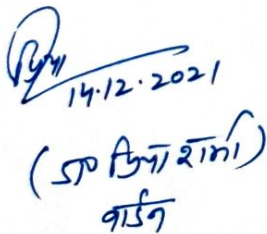 प्रिया
14.12.2021
(डा० प्रिया शर्मा)
वार्डन